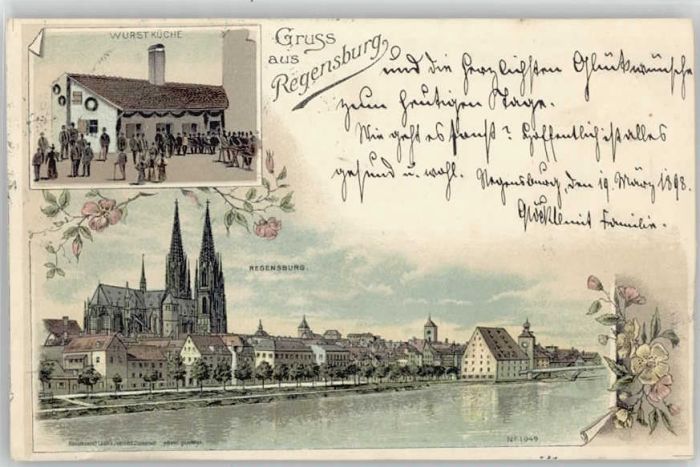 WURSTKÜCHE
Gruss
aus
Regensburg,
und die herzlichsten Glückwünsche
zum heutigen Tage.
Wie geht es sonst? Hoffentlich ist alles
gesund u. wohl. Regensburg, den 19. März 1898.
mit Familie.
REGENSBURG.
No 1049